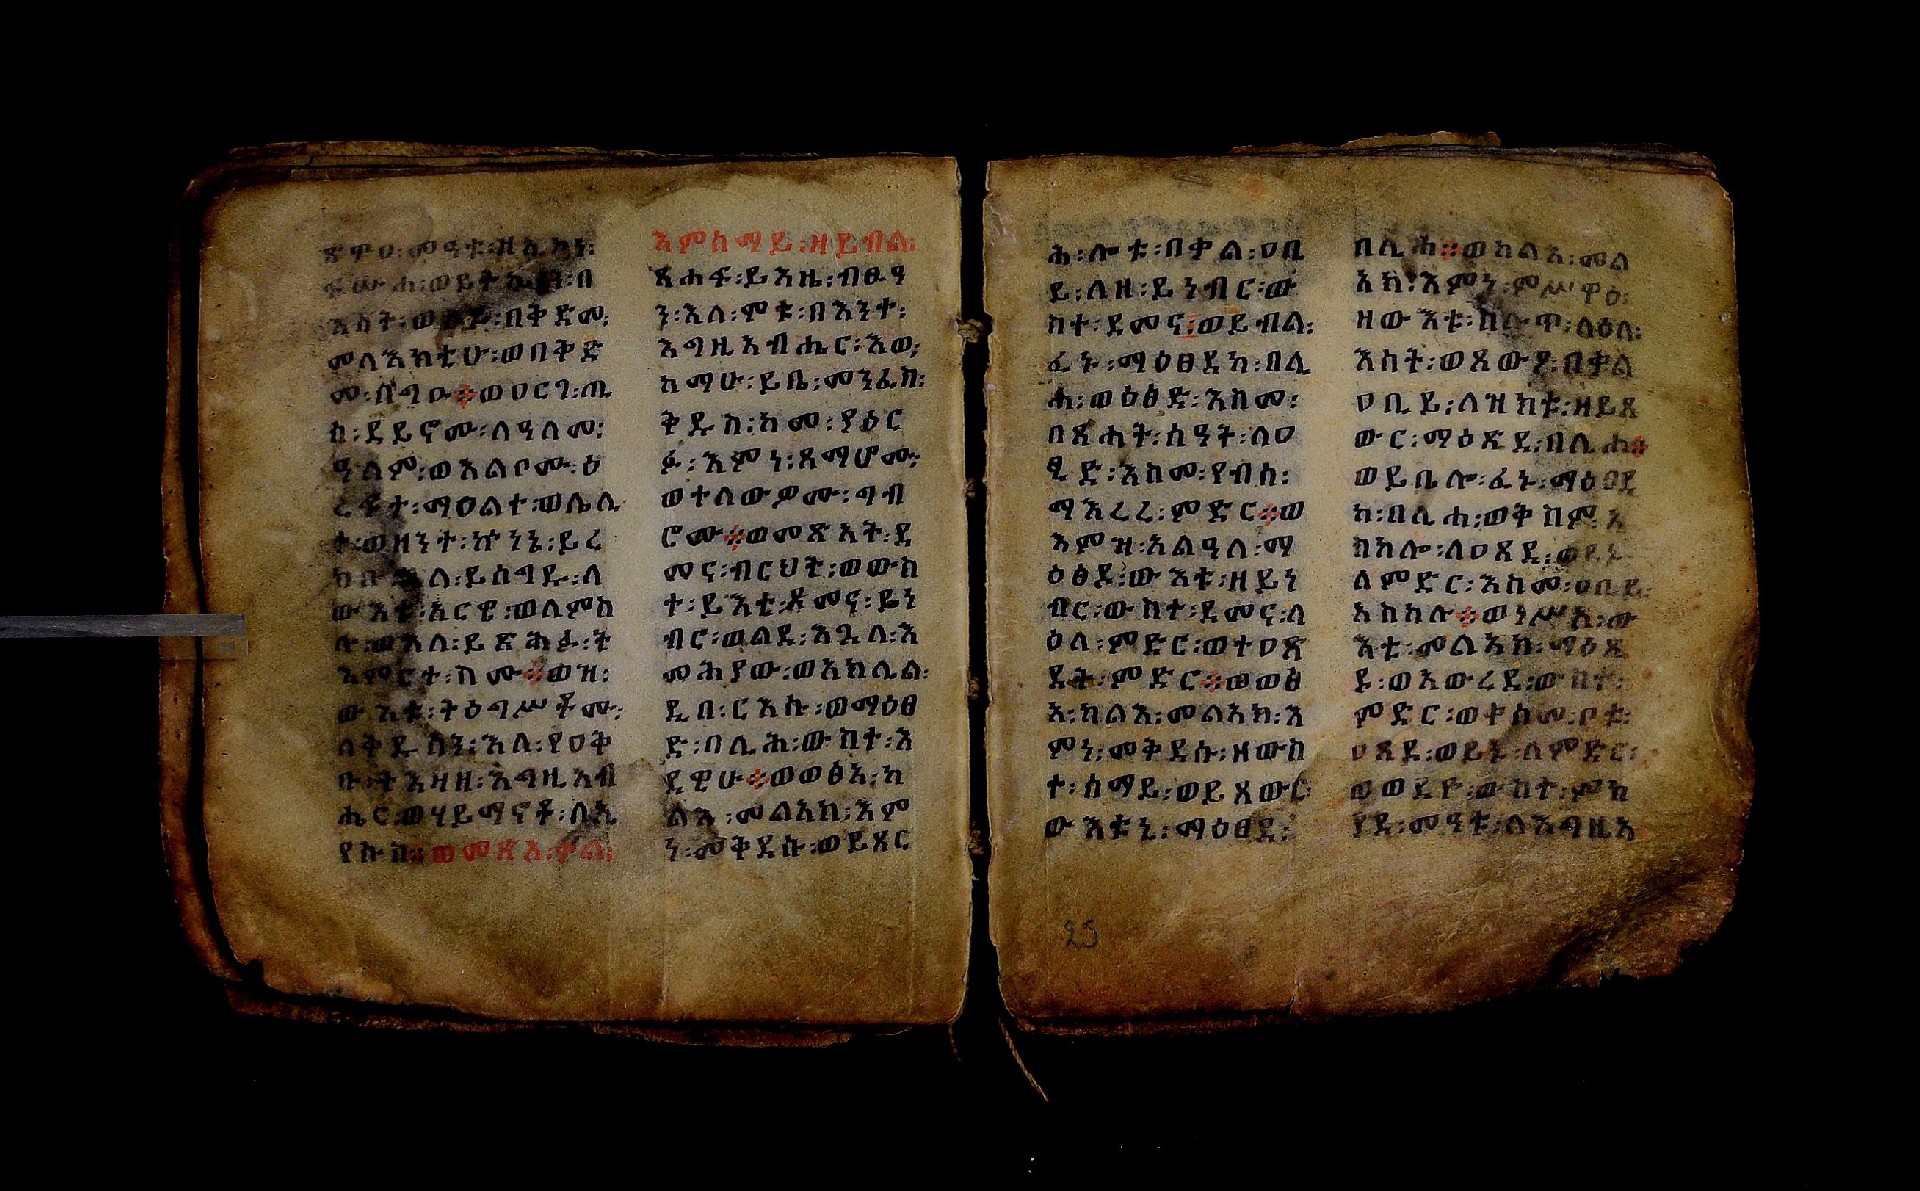 ጽዋዐ፡መዓቱ፡ዘኢኮነ፡
እሳት፡ወበይ፡በቅድመ፡
መላእክቲሁ፡ወበቅድ
መ፡በግዑ፡፡ወዐርገ፡ጢ
ስ፡ደይኖሙ፡ለዓለመ፡
ዓለም፡ወአልቦሙ፡ዕ
ረፍተ፡ማዐልተ፡ወሌሊ
ተ፡ወዘንተ፡ኵነኔ፡ይረ
ክቡ፡እለ፡ይሰግዱ፡ለ
ውእቱ፡አርዌ፡ወለምስ
ሉ፡ወእለ፡ይጽሕፉ፡ት
እምርተ፡ስሙ፡፡ወዝ፡
ውእቱ፡ትዕግሥቶሙ፡
ለቅዱሳን፡እለ፡የዐቅ
ቡ፡ትእዛዘ፡እግዚአብ
ሔር፡ወሃይማኖቶ፡ለኢ
የሱስ፡፡ወመጽአ፡ቃል፡
እምሰማይ፡ዘይብል፡
ጸሐፍ፡ይእዜ፡ብፁዓ
ን፡እለ፡ሞቱ፡በእንተ፡
እግዚአብሔር፡እወ፡
ከማሁ፡ይቤ፡መንፈስ፡
ቅዱስ፡ከመ፡ያዕር
ፉ፡እምነ፡ጻማሆሙ፡
ወተለውዎሙ፡ግብ
ሮሙ፡፡ወመጽአት፡ደ
መና፡ብርህት፡ወውስ
ተ፡ይእቲ፡ደመና፡ይነ
ብር፡ወልደ፡እጓለ፡እ
መሕያው፡ወአክሊል፡
ዲበ፡ርእሱ፡ወማዕፀ
ድ፡በሊሕ፡ውስተ፡እ
ዴሁ፡፡ወወፅአ፡ካ
ልእ፡መልአክ፡እም
ነ፡መቅደሱ፡ወይጸር
ሕ፡ሎቱ፡በቃል፡ዐቢ
ይ፡ለዘ፡ይነብር፡ው
ስተ፡ደመና፡ወይብል፡
ፈኑ፡ማዕፀደከ፡በሊ
ሐ፡ወዕፅድ፡እስመ፡
በጽሐት፡ሰዓት፡ለዐ
ፂድ፡እስመ፡የብሰ፡
ማእረረ፡ምድር፡፡ወ
እምዝ፡አልዓለ፡ማ
ዕፀደ፡ውእቱ፡ዘይነ
ብር፡ውስተ፡ደመና፡ላ
ዕለ፡ምድር፡ወተዐጽ
ደት፡ምድር፡፡ወወፅ
አ፡ካልእ፡መልአክ፡እ
ምነ፡መቅደሱ፡ዘውስ
ተ፡ሰማይ፡ወይጸውር፡
ውእቱኒ፡ማዕፀደ፡
በሊሕ፡፡ወካልእ፡መል
አክ፡እምነ፡ምሥዋዕ፡
ዘውእቱ፡ስሉጥ፡ላዕለ፡
እሳት፡ወጸውዖ፡በቃል
ዐቢይ፡ለዝክቱ፡ዘይጸ
ውር፡ማዕጸደ፡በሊሐ፡፡
ወይቤሎ፡ፈኑ፡ማዕፀደ
ከ፡በሊሐ፡ወቅስም፡አ
ለምድር፡እስመ፡ዐቢይ፡
አስካሉ፡፡ወነሥአ፡ው
እቱ፡መልአክ፡ማዕጸ
ደ፡ወአውረደ፡ውስተ፡
ምድር፡ወቀሰመ፡ቦቱ፡
ዐጸደ፡ወይኑ፡ለምድር፡
ወወደዮ፡ውስተ፡ምክ
ያደ፡መዓቱ፡ለእግዚአ
25